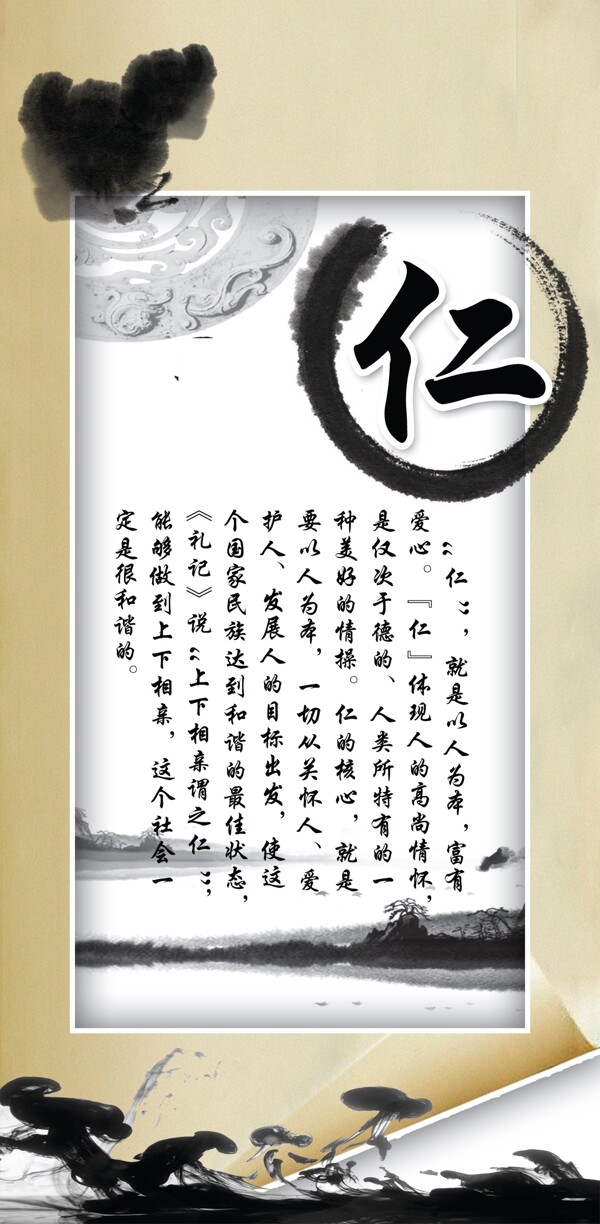 仁
“仁”，就是以人为本，富有
爱心。『仁』体现人的高尚情怀，
是仅次于德的、人类所特有的一
种美好的情操。仁的核心，就是
要以人为本，一切从关怀人、爱
护人、发展人的目标出发，使这
个国家民族达到和谐的最佳状态，
《礼记》说“上下相亲谓之仁”，
能够做到上下相亲，这个社会一
定是很和谐的。